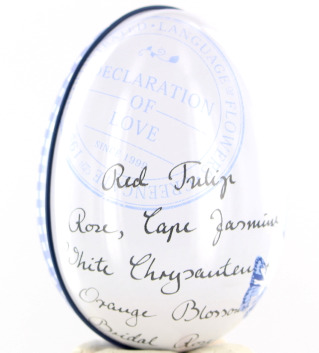 LANGUAGE OF FLOWERS
DECLARATION
OF
LOVE
SINCE 1999
Red Tulip
Rose, Cape Jasmine
White Chrysantem
Orange Blossom
Bridal Rose